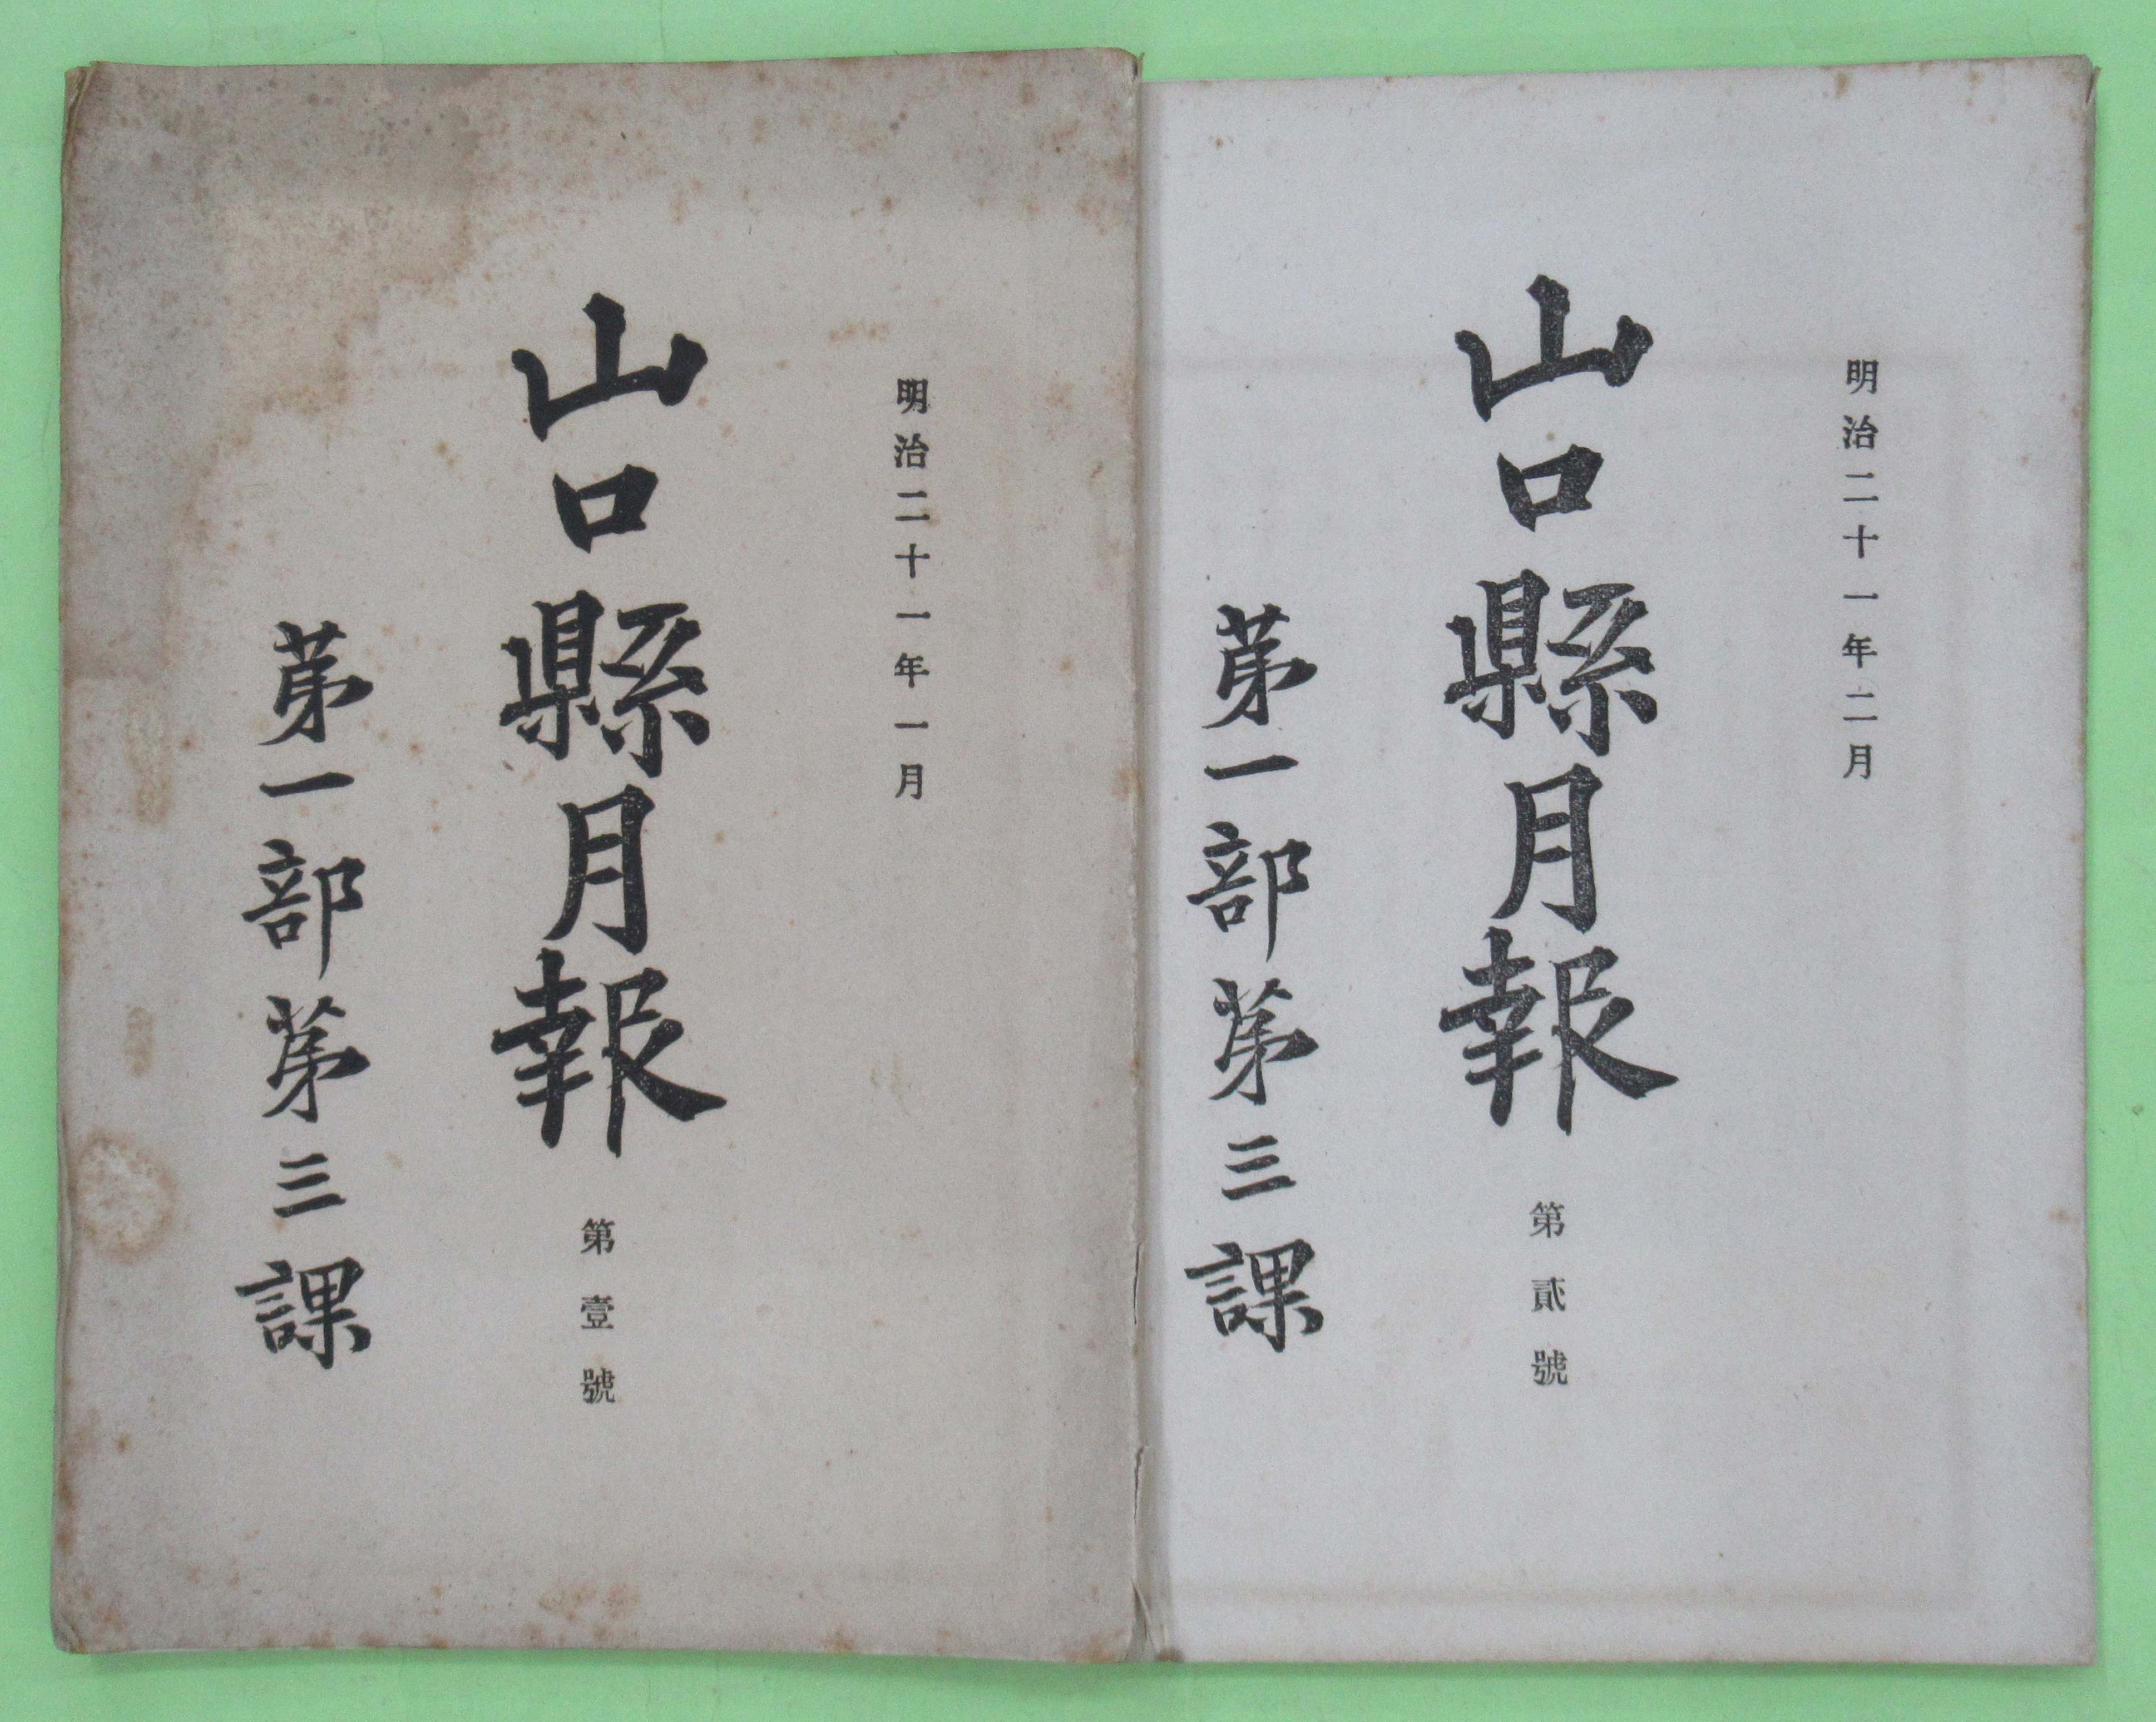 明治二十一年二月
山口縣月報 第貳號
第一部第三課
明治二十一年一月
山口縣月報 第壹號
第一部第三課